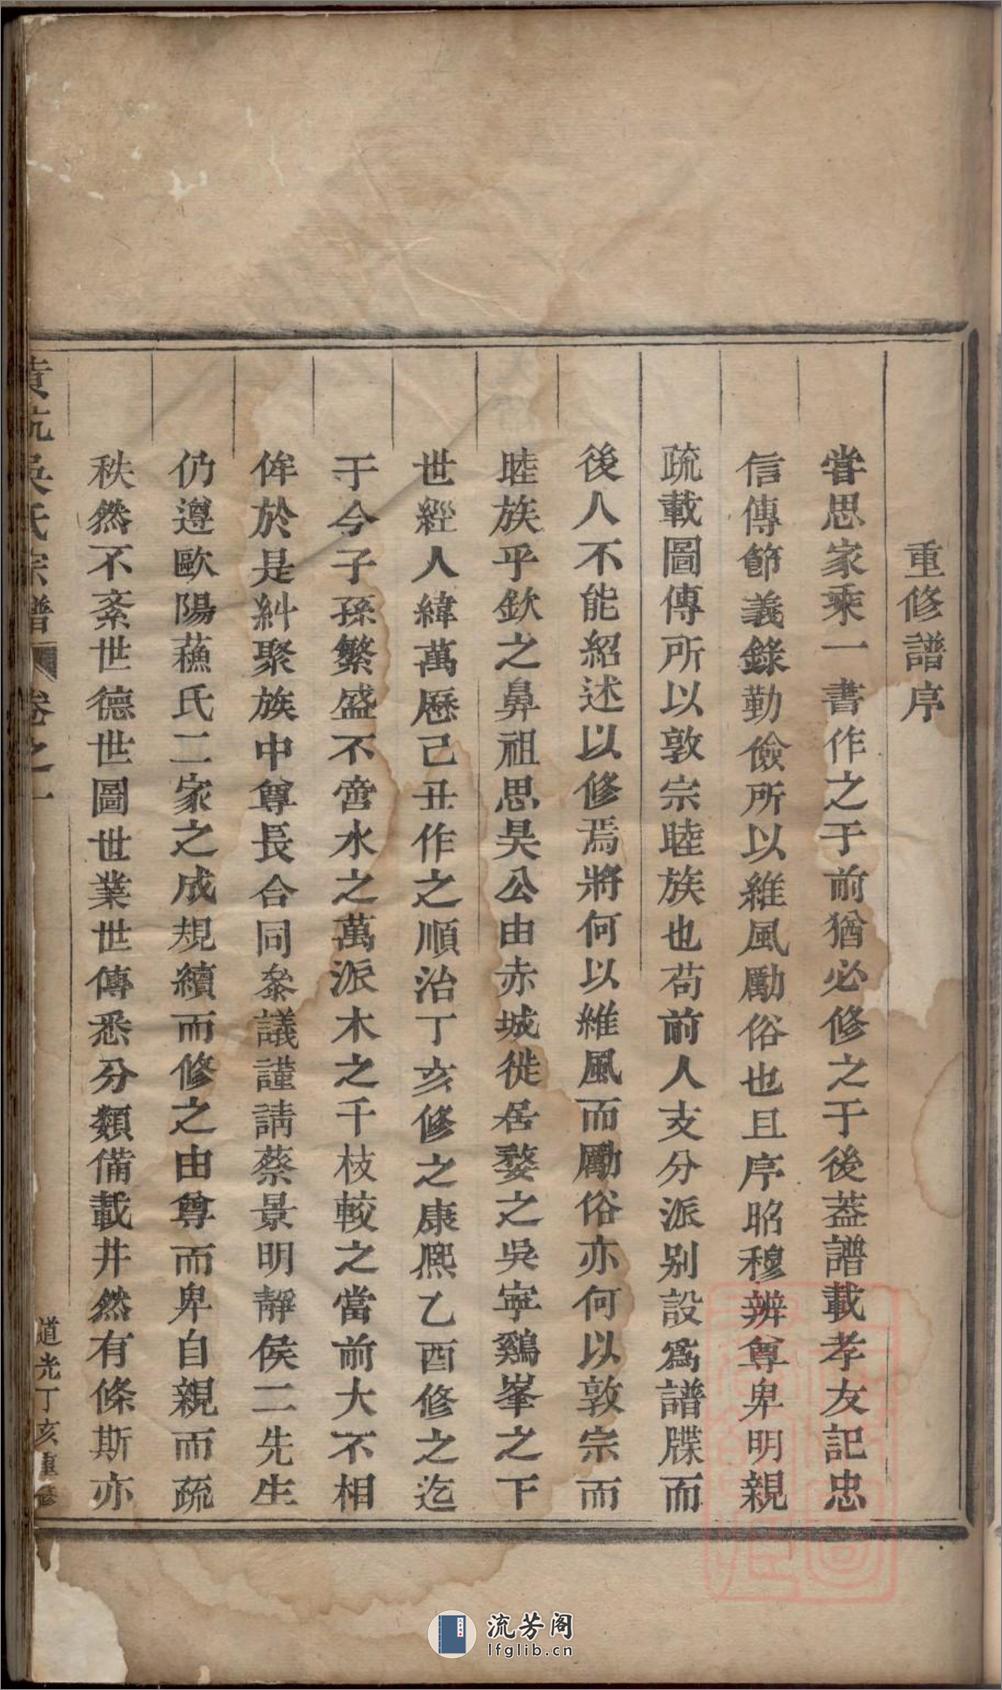 重修譜序
甞思家乘一書作之于前猶必修之于後葢譜載孝友記忠
信傳節義錄勤儉所以維風勵俗也且序昭穆辨尊卑明親
疏載圖傳所以敦宗睦族也苟前人支分派别設為譜牒而
後人不能紹述以修焉將何以維風而勵俗亦何以敦宗而
睦族乎欽之鼻祖思昊公由赤城徙居婺之吳寧鷄峯之下
世經人緯萬曆己丑作之順治丁亥修之康熈乙酉修之迄
于今子孫繁盛不啻水之萬派木之千枝較之當前大不相
侔於是糾聚族中尊長合同叅議謹請蔡景明靜侯二先生
仍遵歐陽蘓氏二家之成規續而修之由尊而卑自親而疏
秩然不紊世德世圖世業世傳悉分類備載井然有條斯亦
吳氏宗譜 卷之一
道光丁亥重修
流芳阁
lfglib.cn